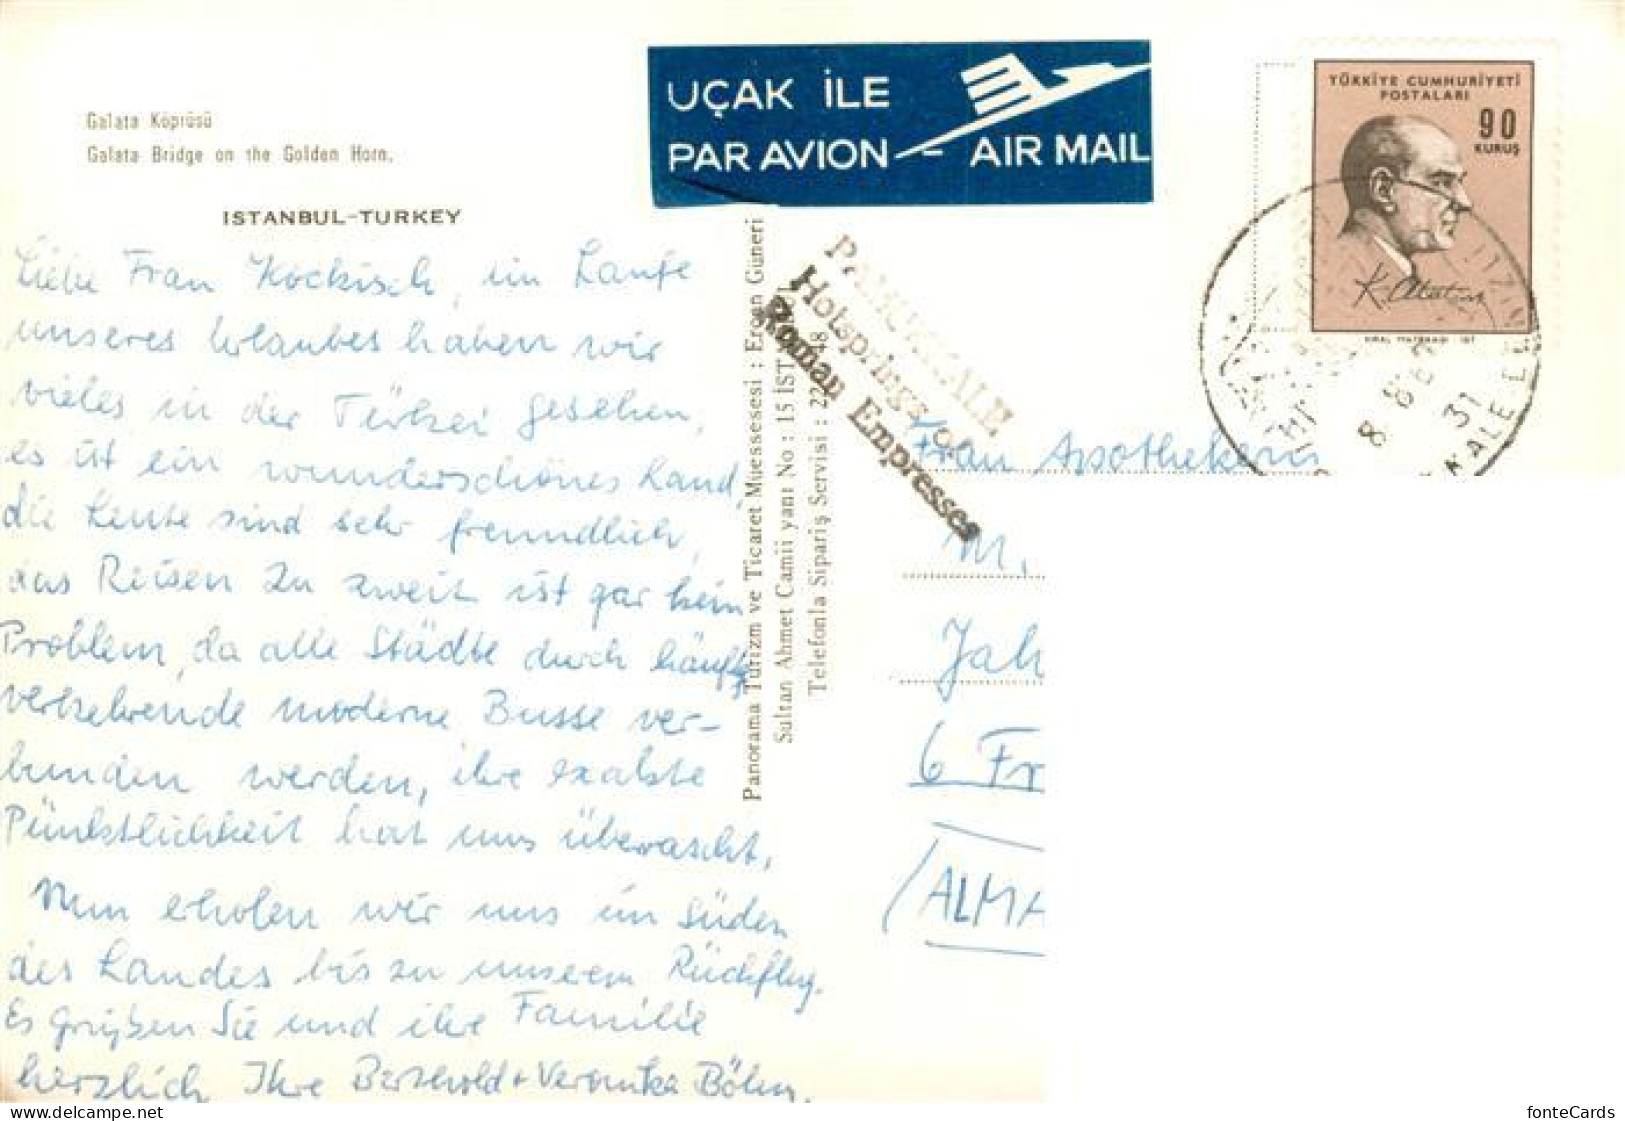 Galata Köprüsü
Galata Bridge on the Golden Horn.
ISTANBUL-TURKEY
Liebe Frau Kockisch, im Laufe
unseres Urlaubes haben wir
vieles in der Türkei gesehen,
es ist ein wunderschönes Land,
die Leute sind sehr freundlich,
das Reisen zu zweit ist gar kein
Problem, da alle Städte durch häufig
verkehrende moderne Busse ver-
bunden werden, ihre exakte
Pünktlichkeit hat uns überrascht.
Nun erholen wir uns im Süden
des Landes bis zu unserem Rückflug.
Es grüßen Sie und ihre Familie
herzlich Ihre Berthold + Veronika Böhm.
Panorama Turizm ve Ticaret Müessesesi : Ercan Güneri
Sultan Ahmet Camii yanı No : 15 İST
Telefonla Sipariş Servisi : 22
UÇAK İLE
PAR AVION – AIR MAIL
PAMUKKALE
Hotsprings of
Roman Empresses
TÜRKİYE CUMHURİYETİ
POSTALARI
90
KURUŞ
K. Atatürk
8 8
31
KALE
Frau Apothekerin
M.
Jah
6 Fr
(ALMA
fonteCards